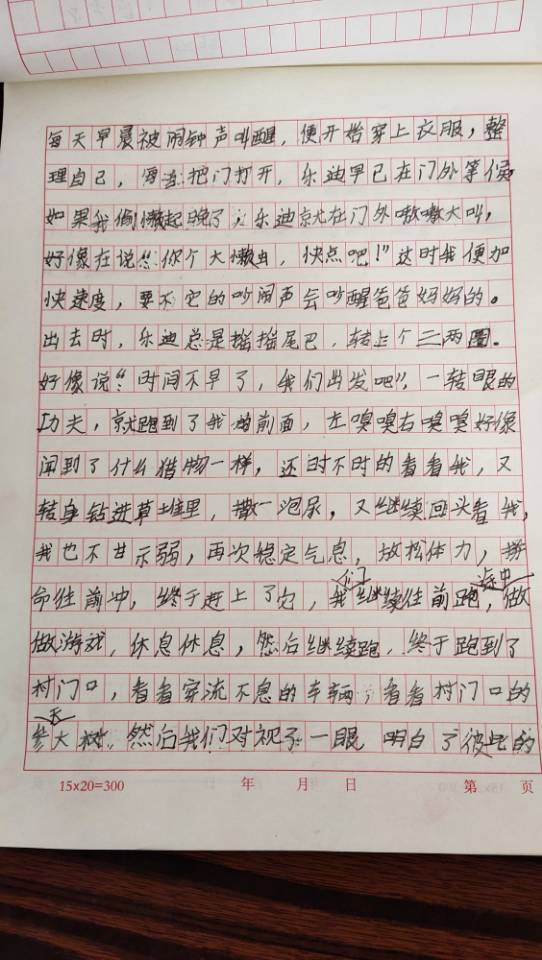 每天早晨被闹钟声叫醒，便开始穿上衣服，整
理自己，把门打开，乐迪早已在门外等候
如果我偷懒起晚了，乐迪就在门外嗷嗷大叫，
好像在说“你个大懒虫，快点吧！”这时我便加
快速度，要不它的吵闹声会吵醒爸爸妈妈的。
出去时，乐迪总是摇摇尾巴，转上个三两圈。
好像说“时间不早了，我们出发吧”，一转眼的
功夫，就跑到了我的前面，左嗅嗅右嗅嗅好像
闻到了什么猎物一样，还时不时的看看我，又
转身钻进草堆里，撒一泡尿，又继续回头看我，
我也不甘示弱，再次稳定气息，放松体力，拼
命往前冲，终于赶上了它，我们继续往前跑，途中做
做游戏，休息休息，然后继续跑，终于跑到了
村门口，看看穿流不息的车辆，看看村门口的
参天大树，然后我们对视了一眼，明白了彼此的
15×20=300 年 月 日 第 页